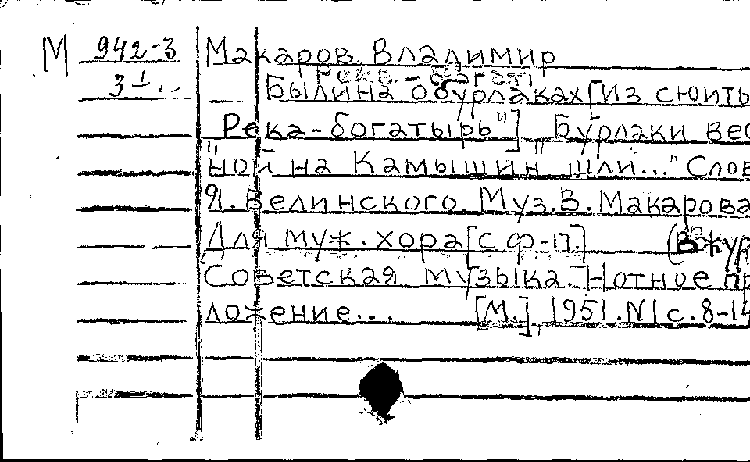 М 942-3 Макаров Владимир
31
Былина о бурлаках [Из сюиты
"Река-богатырь"] "Бурлаки вес
ной на Камышин шли..." Слов
Я. Белинского Муз. В. Макарова
Для муж. хора [с ф-п.] (В жур
Советская музыка. Нотное пр
ложение... [М.], 1951. N1 с. 8-14